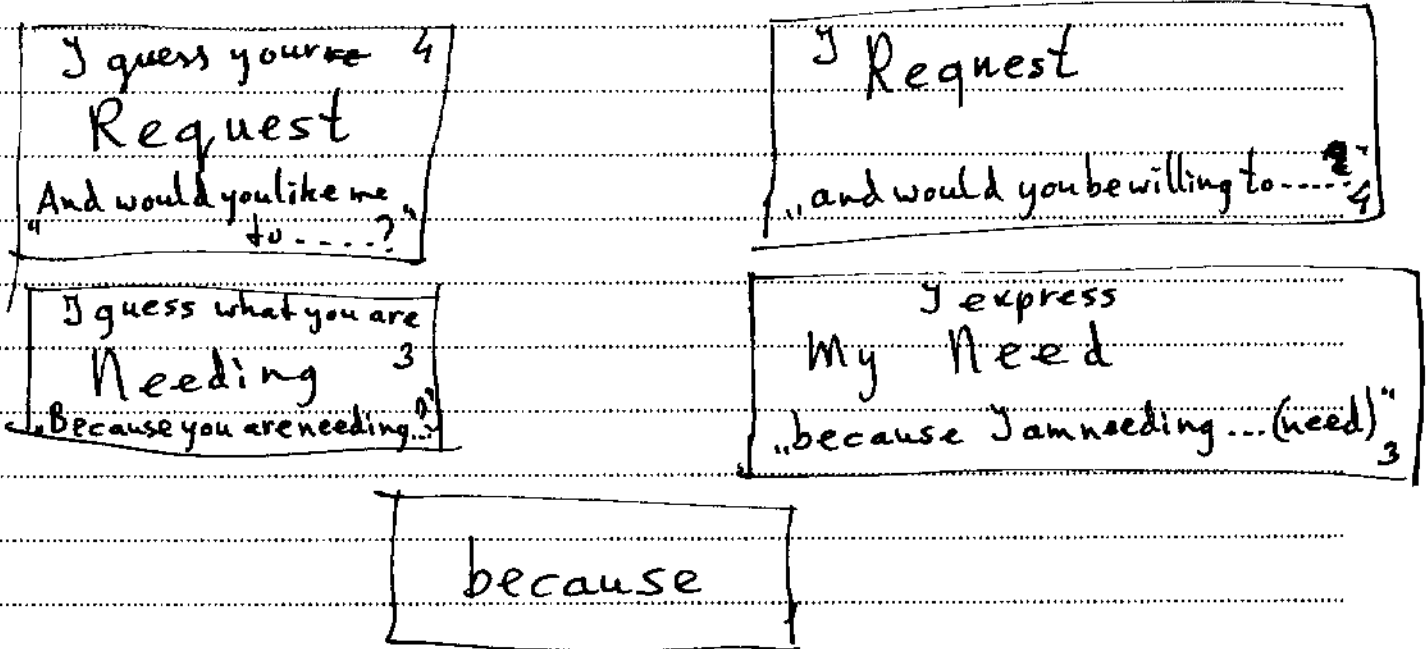 I guess your 4
Request
"And would you like me
to ....?"
I Request
"and would you be willing to .....?"
4
I guess what you are
Needing 3
"Because you are needing...?"
I express
My Need
"because I am needing ... (need)"
3
because